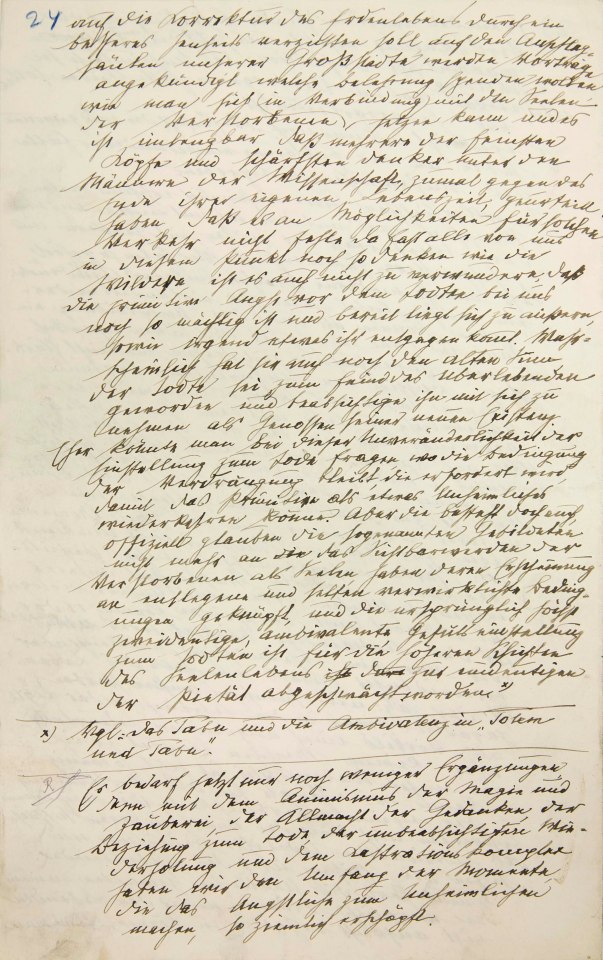 24
auf die Korrektur des Erdenlebens durch ein
besseres Jenseits verzichten soll auf den Anschlag-
säulen unserer Großstädte werden Vorträge
angekündigt welche Belehrung spenden wollen
wie man sich in Verbindung mit den Seelen
der Verstorbenen setzen kann und es
ist unleugbar daß mehrere der feinsten
Köpfe und schärfsten Denker unter den
Männern der Wissenschaft, zumal gegen das
Ende ihrer eigenen Lebenszeit, geurteilt
haben daß es an Möglichkeiten für solchen
Verkehr nicht fehle da fast alle von uns
in diesem Punkt noch so denken wie die
Wilden ist es auch nicht zu verwundern daß
die primitive Angst vor dem Todten bei uns
noch so mächtig ist und bereit liegt sich zu äussern,
sowie irgend etwas ihr entgegen komt. Wahr-
scheinlich hat sie auch noch den alten Sinn
der Todte sei zum Feind des Überlebenden
geworden und beabsichtige ihn mit sich zu
nehmen als Genossen seiner neuen Existenz.
Eher könnte man bei dieser Unveränderlichkeit der
Einstellung zum Tode fragen wo die Bedingung
der Verdrängung bleibt die erfordert wird
damit das Primitive als etwas Unheimliches
wiederkehren könne. Aber die besteht doch auch
offiziell glauben die sogenannten Gebildeten
nicht mehr an das Sichtbarwerden der
Verstorbenen als Seelen haben deren Erscheinung
an entlegene und selten verwirklichte Beding-
ungen geknüpft, und die ursprünglich höchst
zweideutige, ambivalente Gefülseinstellung
zum Todten ist für die höheren Schichten
des Seelenlebens zur eindeutigen
der Pietät abgeschwächt worden x)
x) Vgl: das Tabu und die Ambivalenz in „Totem
und Tabu“.
Es bedarf jetzt nur noch weniger Ergänzungen
denn mit dem Animismus der Magie und
Zauberei der Allmacht der Gedanken der
Beziehung zum Tode der unbeabsichtigten Wie-
derholung und dem Kastrationskomplex
haben wir den Umfang der Momente
die das Ängstliche zum Unheimlichen
machen, so ziemlich erschöpft.